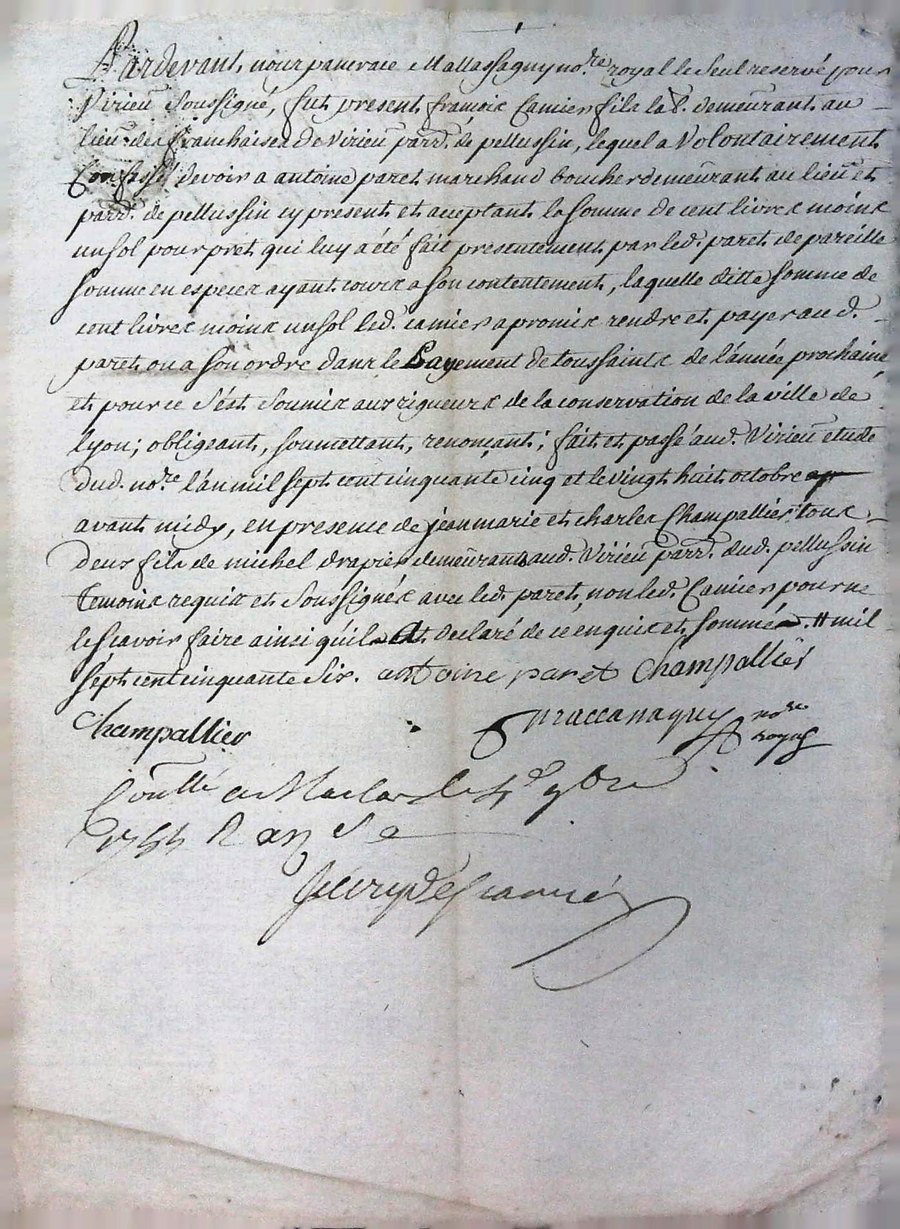 Pardevant nous pancrace Mallassagny no.re royal le Seul reservé pour
Virieu Soussigné, fut present françois Camier fils la.r demeurant au
lieu des franchises de Virieu parr. de pellussin, lequel a Volontairement
Confessé devoir a antoine paret marchand boucher demeurant au lieu et
parr. de pellussin cy present et aceptant la somme de cent livres moins
un sol pour pret qui luy a été fait presentement par led. paret de pareille
somme en especes ayant cours a son contentement, laquelle ditte somme de
cent livres moins un sol led. camier a promis rendre et payer au d.
paret ou a son ordre dans le Payement de toussaints de l'année prochaine
et pour ce s'est soumis aux rigueurs de la conservation de la ville de
lyon; obligeant, soumettant, renonçant; fait et passé aud. Virieu etude
dud. no.re l'an mil sept cent cinquante cinq et le vingt huit octobre
avant midy, en presence de jean marie et charles Champallier tous
deux fils de michel drapier demeurants aud. Virieu parr. dud. pellussin
temoins requis et soussignés avec led. paret, non led. Camier pour ne
le scavoir faire ainsi qu'il a declaré de ce enquis et sommé. # mil
sept cent cinquante six. antoine paret Champallier
Champallier no.re
royal
Conllé a Maclas le 4e 9bre
1755 R